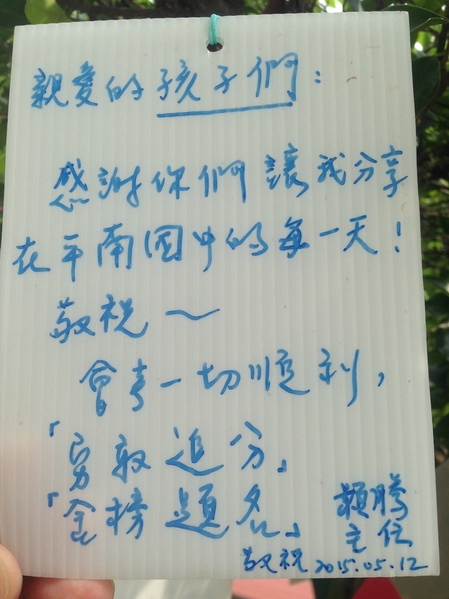 親愛的孩子們：
感謝你們讓我分享
在平南国中的每一天！
敬祝～
會考一切順利，
「勇敢追分」
「金榜題名」
穎騰
主任
敬祝 2015.05.12